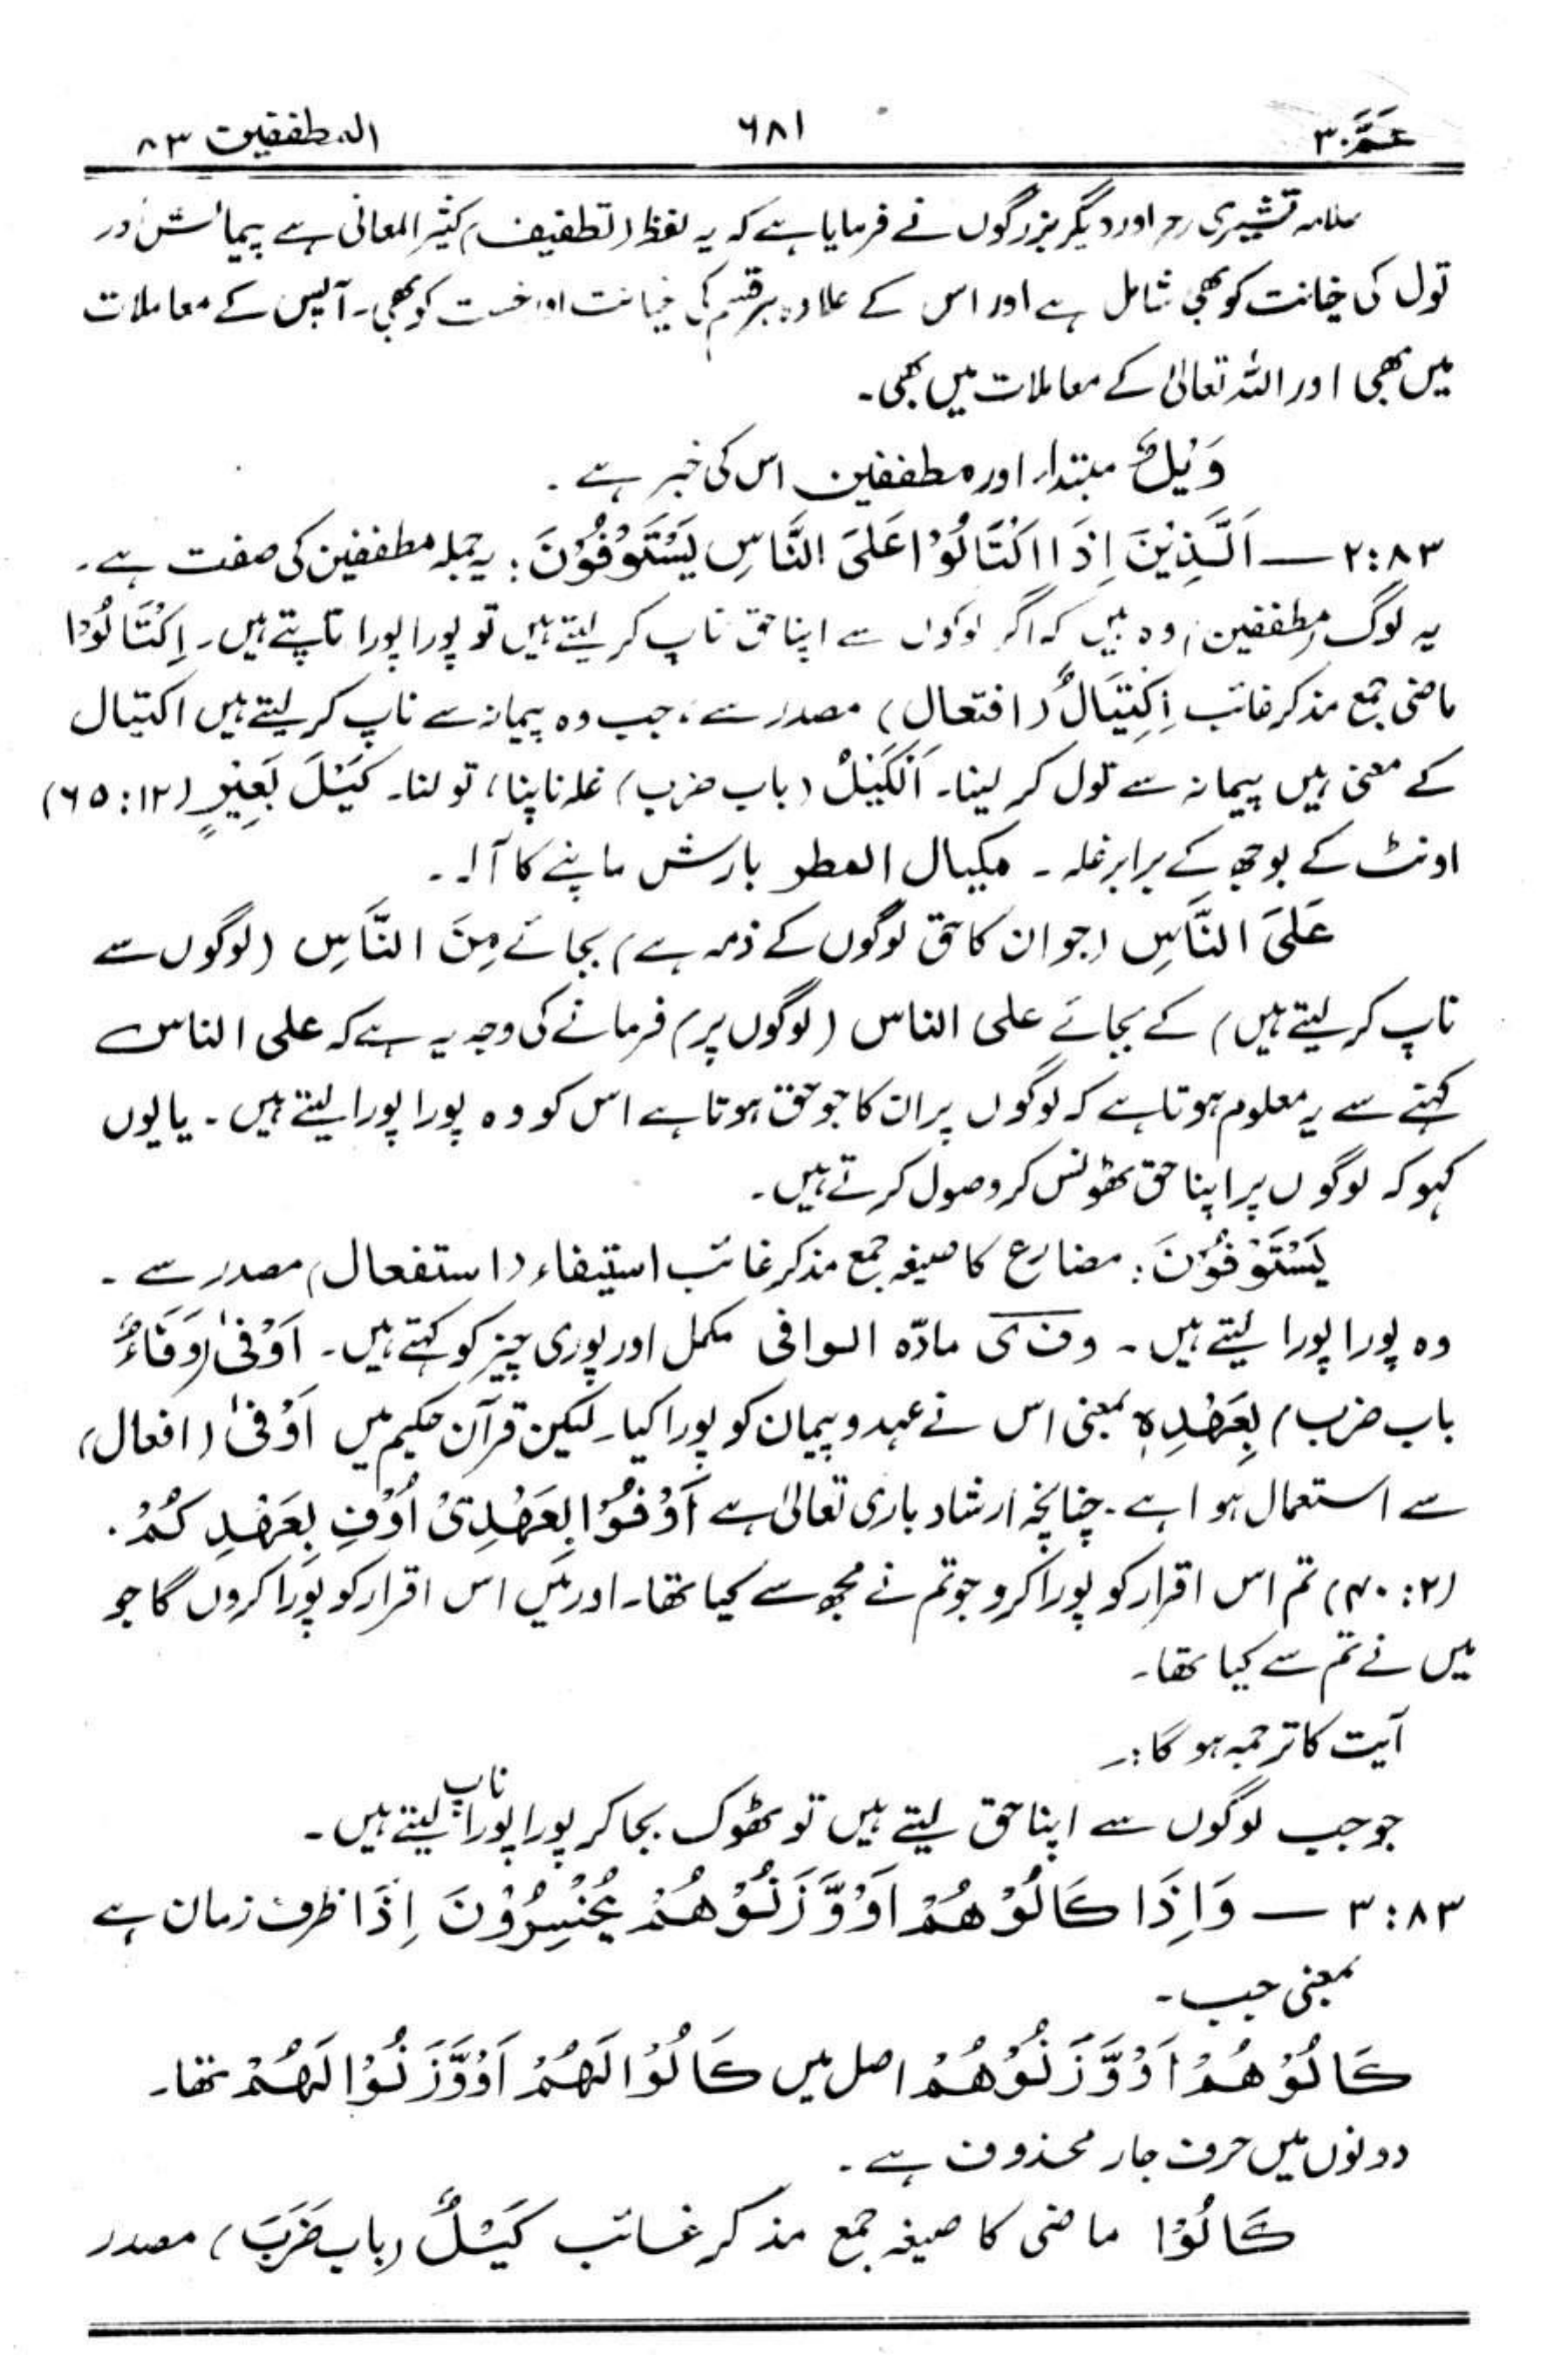 عَمَّ ۳۰ ۶۸۱ المطففین ۸۳
علامہ قشیری رح اور دیگر بزرگوں نے فرمایا ہے کہ یہ لفظ (تطفیف) کثیر المعانی ہے پیمائش اور
تول کی خیانت کو بھی شامل ہے اور اس کے علاوہ ہر قسم کی خیانت اور خست کو بھی۔ آپس کے معاملات
میں بھی اور اللہ تعالیٰ کے معاملات میں بھی۔
وَیْلٌ مبتدار اور مطففین اس کی خبر ہے ۔
۲:۸۳ — اَلَّذِیْنَ اِذَا اکْتَالُوْا عَلَی النَّاسِ یَسْتَوْفُوْنَ: یہ جملہ مطففین کی صفت ہے۔
یہ لوگ (مطففین) وہ ہیں کہ اگر لوگوں سے اپنا حق ناپ کر لیتے ہیں تو پورا پورا ناپتے ہیں۔ اِکْتَالُوْا
ماضی جمع مذکر غائب اِکْتِیَالٌ (افتعال) مصدر سے، جب وہ پیمانہ سے ناپ کر لیتے ہیں اکتیال
کے معنی ہیں پیمانہ سے تول کر لینا۔ اَلْکَیْلُ (باب ضرب) غلہ ناپنا، تولنا۔ کَیْلَ بَعِیْرٍ (۶۵:۱۲)
اونٹ کے بوجھ کے برابر غلہ ۔ مکیال المطر بارش ماپنے کا آلہ ۔
عَلَی النَّاسِ (جو ان کا حق لوگوں کے ذمہ ہے) بجائے مِنَ النَّاسِ (لوگوں سے
ناپ کر لیتے ہیں) کے بجائے علی الناس (لوگوں پر) فرمانے کی وجہ یہ ہے کہ علی الناس
کہنے سے یہ معلوم ہوتا ہے کہ لوگوں پر ان کا جو حق ہوتا ہے اس کو وہ پورا پورا لیتے ہیں ۔ یا یوں
کہو کہ لوگوں پر اپنا حق ٹھونس کر وصول کرتے ہیں۔
یَسْتَوْفُوْنَ: مضارع کا صیغہ جمع مذکر غائب استیفاء (استفعال) مصدر سے ۔
وہ پورا پورا لیتے ہیں ۔ وف ی مادّہ الوافی مکمل اور پوری چیز کو کہتے ہیں۔ اَوْفیٰ (وَفَاءٌ
باب ضرب) بِعَهْدِہٖ بمعنی اس نے عہد و پیمان کو پورا کیا۔ لیکن قرآن حکیم میں اَوْفیٰ (افعال)
سے استعمال ہوا ہے ۔ چنانچہ ارشاد باری تعالیٰ ہے اَوْفُوْا بِعَهْدِیْ اُوْفِ بِعَهْدِکُمْ ۔
(۴۰:۲) تم اس اقرار کو پورا کرو جو تم نے مجھ سے کیا تھا۔ اور میں اس اقرار کو پورا کروں گا جو
میں نے تم سے کیا تھا۔
آیت کا ترجمہ ہوگا:۔
جو جب لوگوں سے اپنا حق لیتے ہیں تو ٹھوک بجا کر پورا پورا ناپ لیتے ہیں ۔
۳:۸۳ — وَاِذَا کَالُوْهُمْ اَوْ وَّزَنُوْهُمْ یُخْسِرُوْنَ اِذَا ظرف زمان ہے
بمعنی جب ۔
کَالُوْهُمْ اَوْ وَّزَنُوْهُمْ اصل میں کَالُوْا لَهُمْ اَوْ وَّزَنُوْا لَهُمْ تھا۔
دونوں میں حرف جار محذوف ہے ۔
کَالُوْا ماضی کا صیغہ جمع مذکر غائب کَیْلٌ (باب ضَرَبَ) مصدر